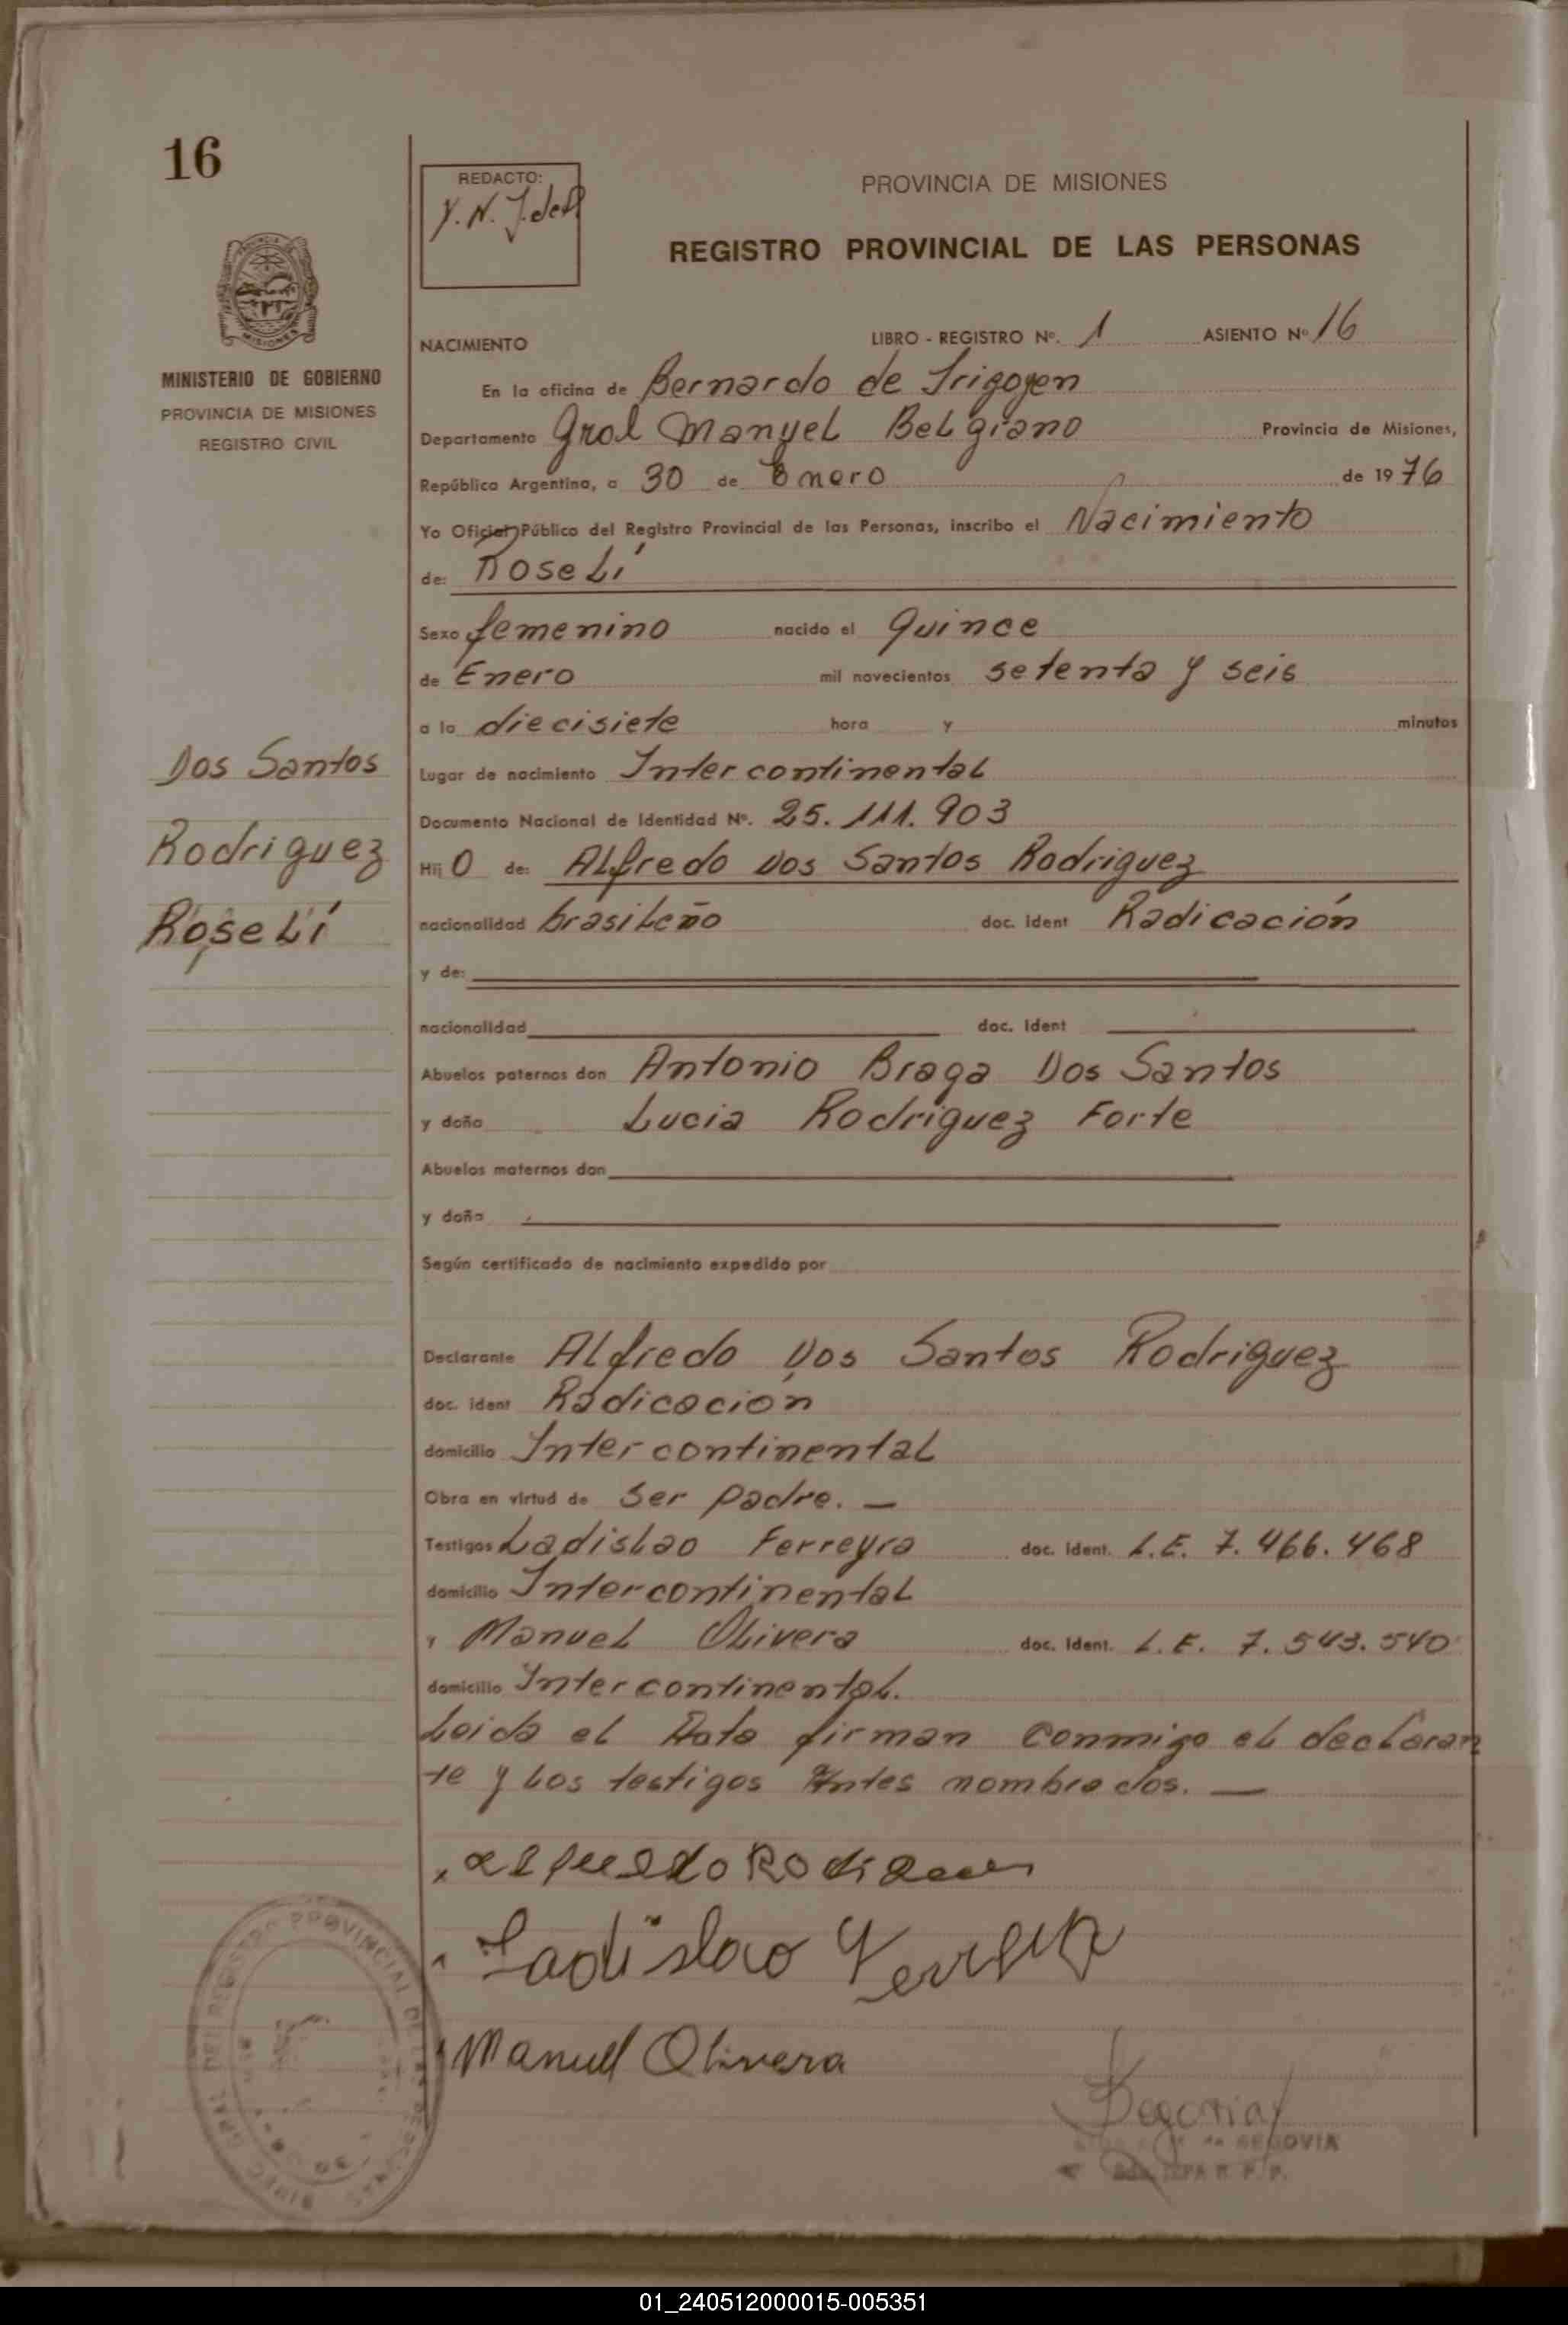 16
REDACTO:
PROVINCIA DE MISIONES
REGISTRO PROVINCIAL DE LAS PERSONAS
MISIONES
MINISTERIO DE GOBIERNO
PROVINCIA DE MISIONES
REGISTRO CIVIL
NACIMIENTO LIBRO - REGISTRO Nº. 1 ASIENTO Nº 16
En la oficina de Bernardo de Irigoyen
Departamento Gral Manuel Belgrano Provincia de Misiones,
República Argentina, a 30 de Enero de 1976
Yo Oficial Público del Registro Provincial de las Personas, inscribo el Nacimiento
de: Roselí
Sexo femenino nacido el Quince
de Enero mil novecientos setenta y seis
a la diecisiete hora y minutos
Lugar de nacimiento Intercontinental
Documento Nacional de Identidad Nº. 25.111.903
Dos Santos
Rodriguez
Roselí
Hij O de: Alfredo Dos Santos Rodriguez
nacionalidad brasileño doc. ident Radicación
y de:
nacionalidad doc. ident
Abuelos paternos don Antonio Braga Dos Santos
y doña Lucia Rodriguez Forte
Abuelos maternos don
y doña
Según certificado de nacimiento expedido por
Declarante Alfredo Dos Santos Rodriguez
doc. ident Radicación
domicilio Intercontinental
Obra en virtud de Ser padre. —
Testigos Ladislao Ferreyra doc. ident. L.E. 7.466.468
domicilio Intercontinental
y Manuel Olivera doc. ident. L.E. 7.543.540
domicilio Intercontinental.
Leida el Acta firman conmigo el declaran
te y los testigos Antes nombrados. —
Ladislao Ferreyra
Manuel Olivera
REGISTRO PROVINCIAL DE LAS PERSONAS
SEGOVIA
01_240512000015-005351